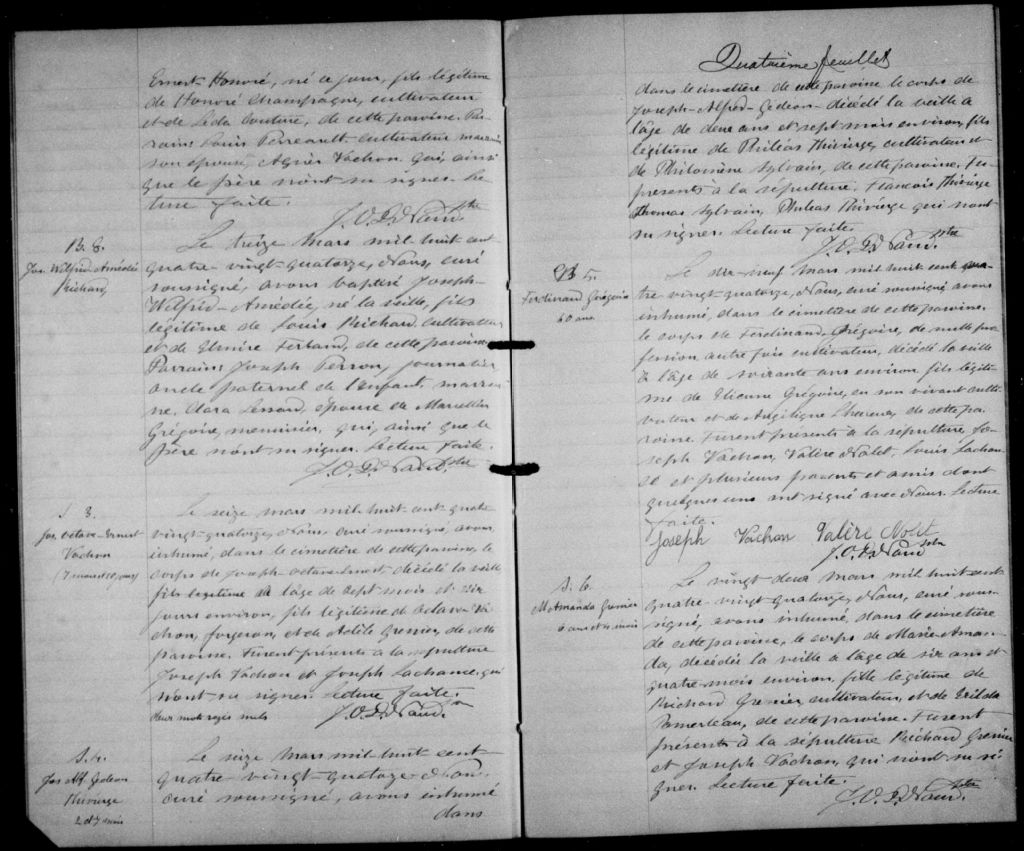 Ernest-Honoré, né ce jour, fils légitime
de Honoré Champagne, cultivateur
et de Léda Couture, de cette paroisse. Par-
rain: Louis Perreault cultivateur marraine
son épouse, Agnès Vachon. qui, ainsi
que le père n'ont su signer. Lec-
ture faite.
J.O.D. Naud, Ptre
B. 8.
Jos. Wilfrid Amédée
Richard,
Le treize Mars mil-huit-cent
quatre-vingt-quatorze, Nous, curé
soussigné, avons baptisé Joseph-
Wilfrid-Amédée, né la veille, fils
légitime de Louis Richard cultivateur
et de Elmire Ferland, de cette paroisse.
Parrain: Joseph Perron, journalier,
oncle paternel de l'enfant, marrai-
ne, Clara Lessard, épouse de Marcellin
Grégoire, menuisier, qui, ainsi que le
père n'ont su signer. Lecture faite.
J.O.D. Naud, Ptre
S 3.
Jos. Octave-Ernest
Vachon
(7 mois et 10 jours)
Le seize mars mil-huit-cent quatre
vingt-quatorze, Nous, curé soussigné, avons
inhumé, dans le cimetière de cette paroisse, le
corps de Joseph-Octave-Ernest, décédé la veille
fils légitime à l'âge de sept mois et dix
jours environ, fils légitime de Octave Va-
chon, forgeron, et de Adèle Grenier, de cette
paroisse. Furent présents à la sépulture
Joseph Vachon et Joseph Lachance, qui
n'ont su signer. Lecture faite.
deux mots rayés nuls
J.O.D. Naud, Ptre
S. 4.
Jos Alf Gédéon
Thivierge
2 et 7 mois
Le seize Mars mil-huit cent
quatre-vingt-quatorze, Nous,
curé soussigné, avons inhumé
dans
Quatrième feuillet
dans le cimetière de cette paroisse le corps de
Joseph-Alfred-Gédéon-décédé la veille à
l'âge de deux ans et sept mois environ, fils
légitime de Philéas Thivierge, cultivateur et
de Philomène Sylvain, de cette paroisse. Fu-
présents à la sépulture. François Thivierge
Thomas Sylvain, Philéas Thivierge qui n'ont
su signer. Lecture faite.
J.O.D. Naud, Ptre
S 5.
Ferdinand Grégoire
60 ans
Le dix-neuf Mars mil-huit cent qua-
tre-vingt-quatorze, Nous, curé soussigné avons
inhumé, dans le cimetière de cette paroisse,
le corps de Ferdinand Grégoire, de nulle pro-
fession autre fois cultivateur, décédé la veille
à l'âge de soixante ans environ fils légiti-
me de Etienne Grégoire, en son vivant culti-
vateur et de Angélique de cette pa-
roisse. Furent présents à la sépulture Jo-
seph Vachon, Valère Nolet, Louis Lachan-
ce et plusieurs parents et amis dont
quelques uns ont signé avec Nous. Lecture
faite.
Joseph Vachon Valère Nolet
J.O.D. Naud Ptre
S. 6.
M Amanda Grenier
6 ans et 4 mois
Le vingt deux Mars mil-huit cent
quatre-vingt-quatorze, Nous, curé sous-
signé, avons inhumé, dans le cimetière
de cette paroisse, le corps de Marie-Aman-
da, décédée la veille à l'âge de six ans et
quatre-mois environ, fille légitime de
Richard Grenier, cultivateur, et de Exilda
Pomerleau, de cette paroisse. Furent
présents à la sépulture Richard Grenier
et Joseph Vachon, qui n'ont su si-
gner. Lecture faite.
J.O.D. Naud, Ptre